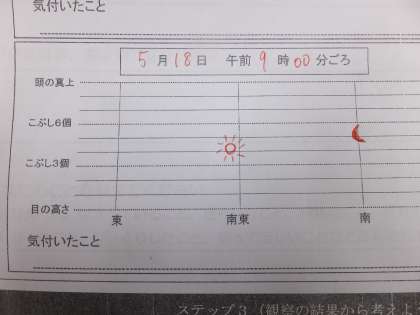 気付いたこと
5月18日 午前9時00分ごろ
頭の真上
こぶし6個
こぶし3個
目の高さ
東 南東 南
気付いたこと
ステップ3(観察の結果から考えよ